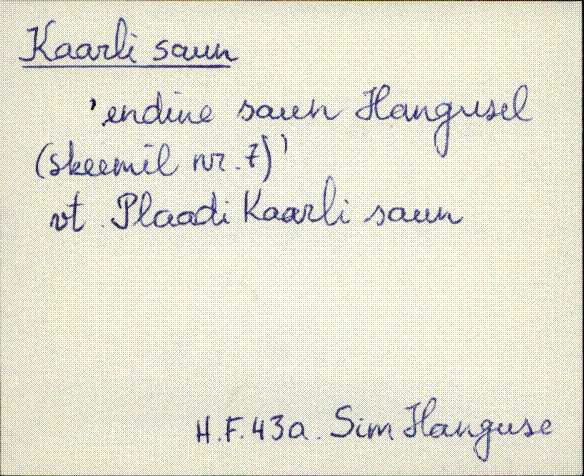 Kaarli saun
'endine saun Hangusel
(skeemil nr. 7)'
vt. Plaadi Kaarli saun
H.F.43a. Sim Hanguse